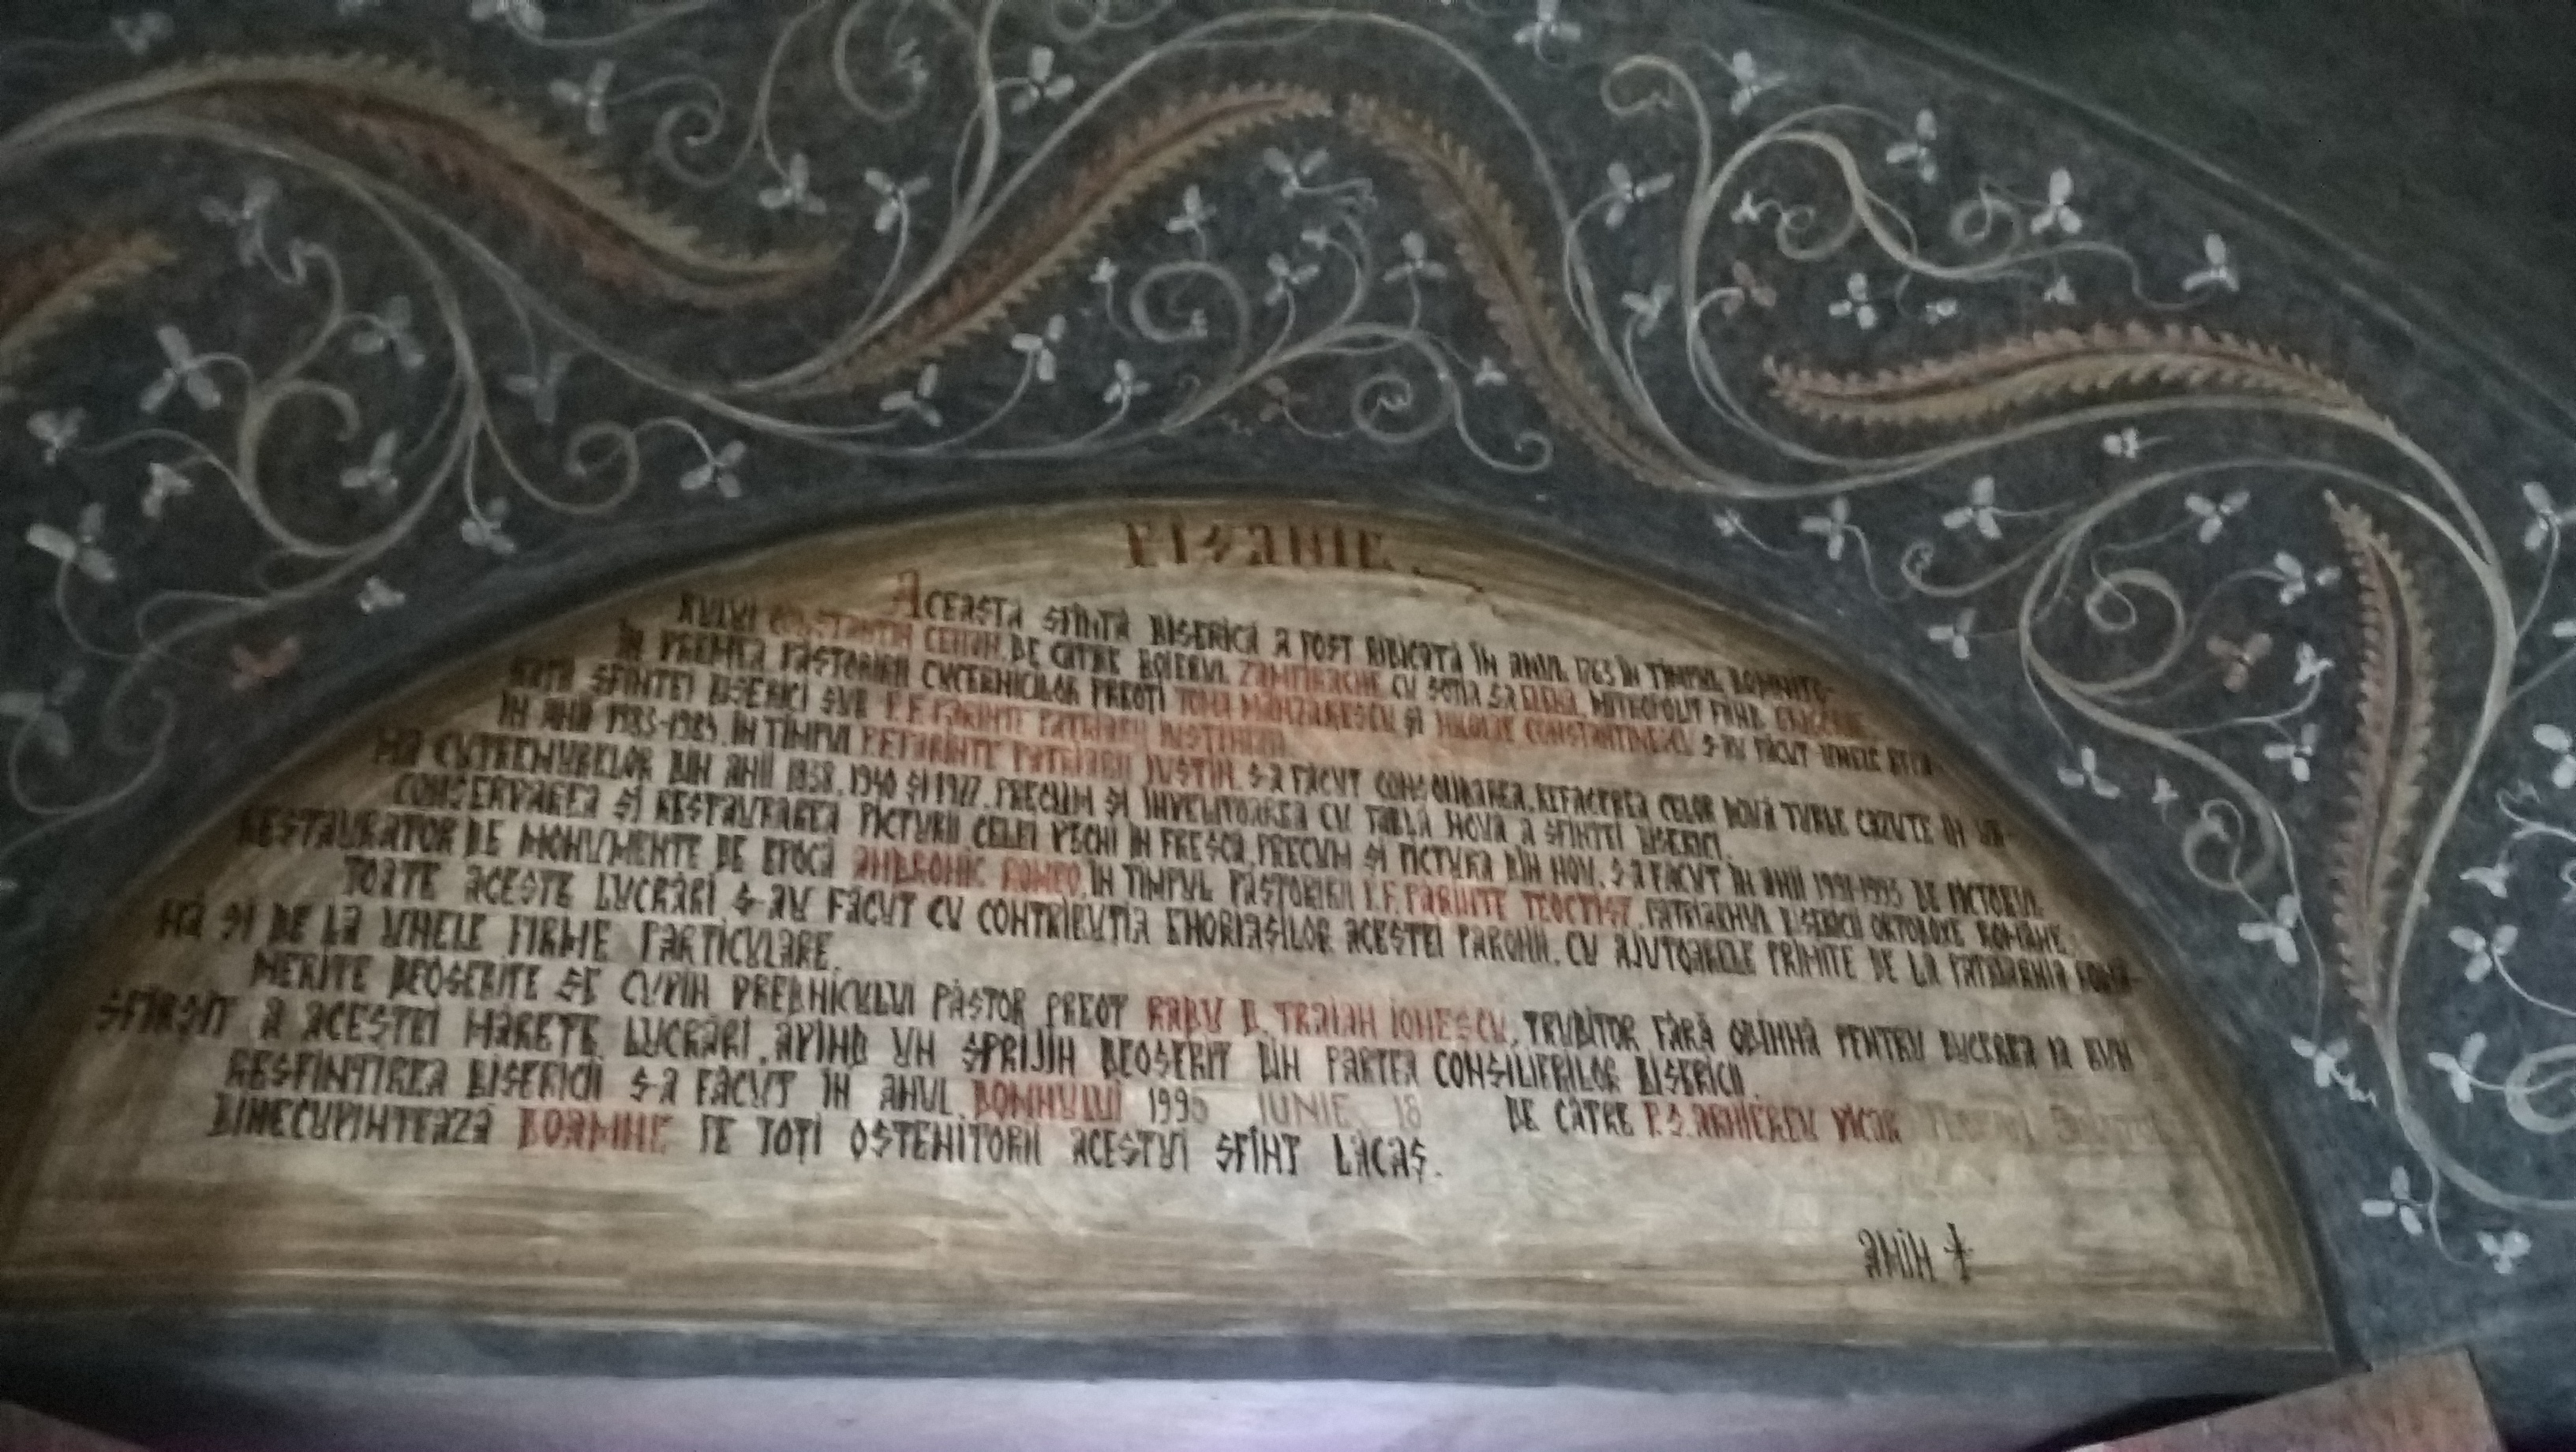 PISANIE
ACEASTĂ SFÎNTĂ BISERICĂ A FOST RIDICATĂ ÎN ANUL 1763 ÎN TIMPUL DOMNITO-
RULUI CONSTANTIN CEHAN, DE CĂTRE BOIERUL ZAMFIRACHE CU SOȚIA SA ELENA, MITROPOLIT FIIND GRIGORIE.
ÎN VREMEA PĂSTORIRII CUCERNICILOR PREOȚI TOMA MÂNZĂRESCU ȘI NICOLAE CONSTANTINESCU S-AU FĂCUT UNELE
SFINTEI BISERICI SUB P.F. PĂRINTE PATRIARH JUSTINIAN
ÎN ANII 1983-1985, ÎN TIMPUL P.F. PĂRINTE PATRIARH JUSTIN, S-A FĂCUT CONSOLIDAREA, REFACEREA CELOR NOUĂ TURLE CĂZUTE ÎN UR-
MA CUTREMURELOR DIN ANII 1838, 1940 ȘI 1977, PRECUM ȘI ÎNVELITOAREA CU TABLĂ NOUĂ A SFINTEI BISERICI.
CONSERVAREA ȘI RESTAURAREA PICTURII CELEI VECHI ÎN FRESCĂ, PRECUM ȘI PICTURA DIN NOU, S-A FĂCUT ÎN ANII 1991-1995 DE PICTORUL
RESTAURATOR DE MONUMENTE DE EPOCĂ ANDRONIC ROMEO, ÎN TIMPUL PĂSTORIRII P.F. PĂRINTE TEOCTIST, PATRIARHUL BISERICII ORTODOXE ROMÂNE.
TOATE ACESTE LUCRĂRI S-AU FĂCUT CU CONTRIBUȚIA ENORIAȘILOR ACESTEI PAROHII, CU AJUTOARELE PRIMITE DE LA PATRIARHIA ROMÂ-
NĂ ȘI DE LA UNELE FIRME PARTICULARE.
MERITE DEOSEBITE SE CUVIN VREDNICULUI PĂSTOR PREOT RADU D. TRAIAN IONESCU, TRUDITOR FĂRĂ ODIHNĂ PENTRU DUCEREA LA BUN
SFÎRȘIT A ACESTEI MĂREȚE LUCRĂRI, AVÎND UN SPRIJIN DEOSEBIT DIN PARTEA CONSILIERILOR BISERICII.
RESFINȚIREA BISERICII S-A FĂCUT ÎN ANUL DOMNULUI 1996 IUNIE 16 DE CĂTRE P.S. ARHIEREU VICAR
BINECUVINTEAZĂ DOAMNE PE TOȚI OSTENITORII ACESTUI SFÎNT LĂCAȘ.
AMIN